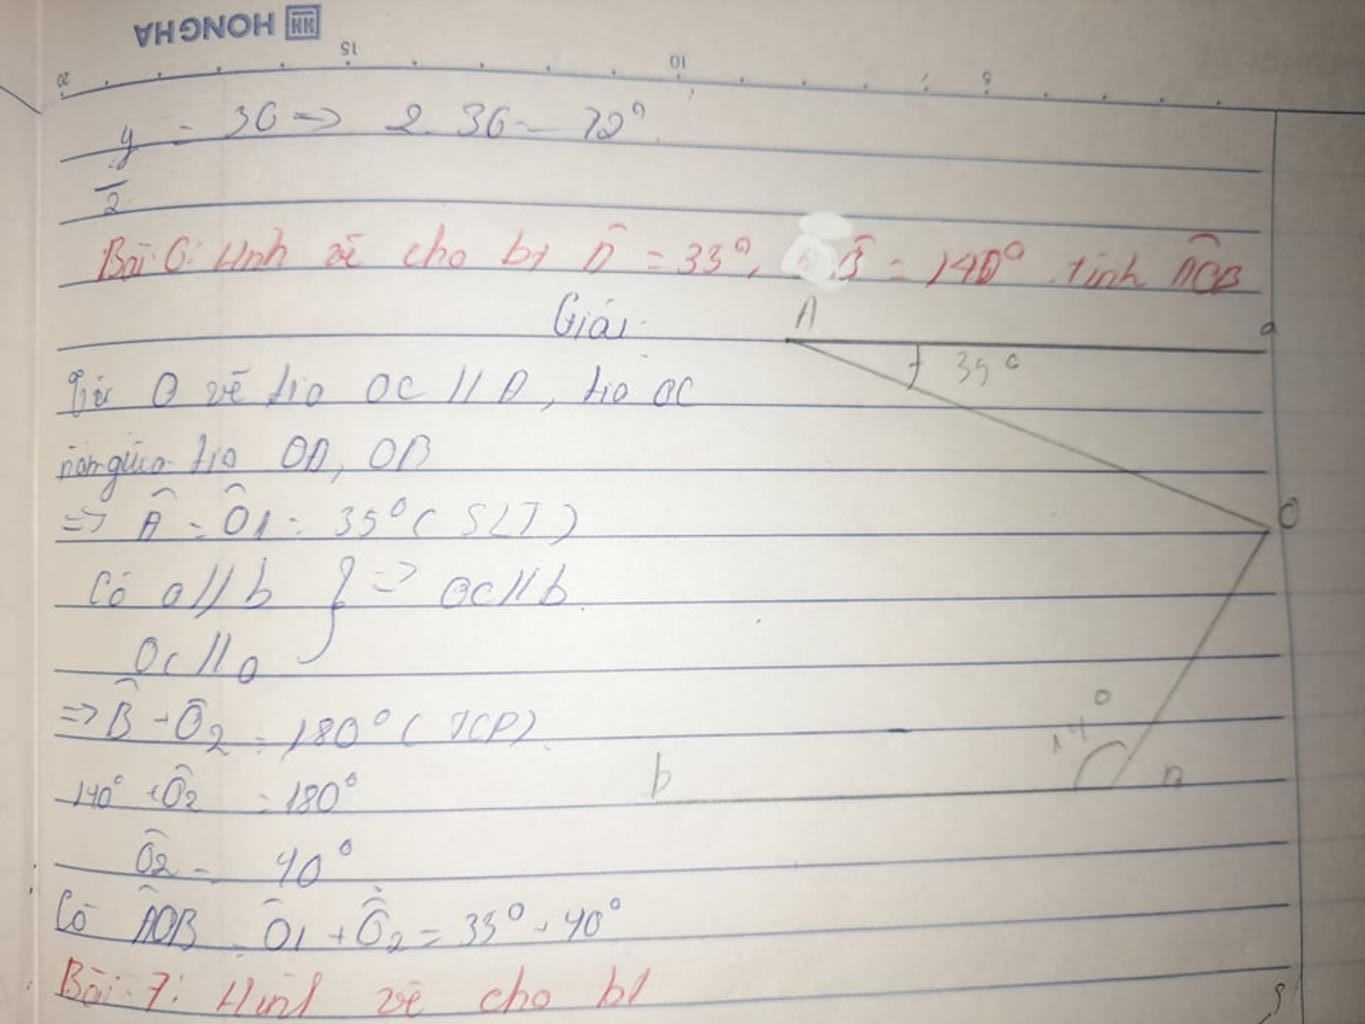 HONG HA
20 15 10 5
y/2 = 36 => 2. 36 = 72°
Bài 6: Hình vẽ cho bt Â = 35°, B̂ = 140° tính AOB
Giải
A a
35°
Từ O vẽ tia OC // a, tia OC
nằm giữa tia OA, OB
=> Â = Ô1 = 35° (SLT)
O
Có a // b } => OC // b
OC // a
=> B̂ + Ô2 = 180° (TCP)
b 14 °
140° + Ô2 = 180°
Ô2 = 40°
Có AOB = Ô1 + Ô2 = 35° + 40°
Bài 7: Hình vẽ cho bt